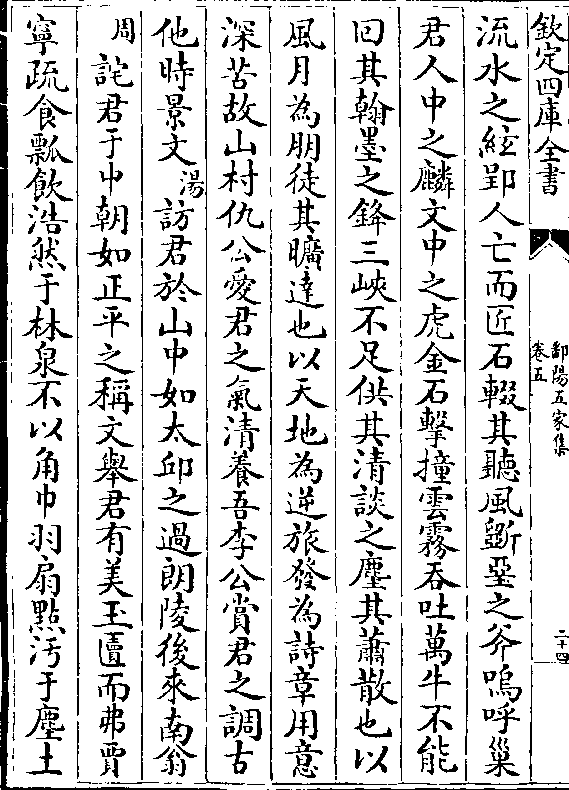 欽定四庫全書
鄱陽五家集
卷五
二十四
流水之絃郢人亡而匠石輟其聽風斵堊之斧嗚呼巢
君人中之麟文中之虎金石擊撞雲霧吞吐萬牛不能
回其翰墨之鋒三峽不足供其清談之麈其蕭散也以
風月為朋徒其曠達也以天地為逆旅發為詩章用意
深苦故山村仇公愛君之氣清養吾李公賞君之調古
他時景文湯訪君於山中如太邱之過朗陵後來南翁
周詫君于中朝如正平之稱文舉君有美玉匵而弗賈
寧疏食瓢飲浩然于林泉不以角巾羽扇點汚于塵土